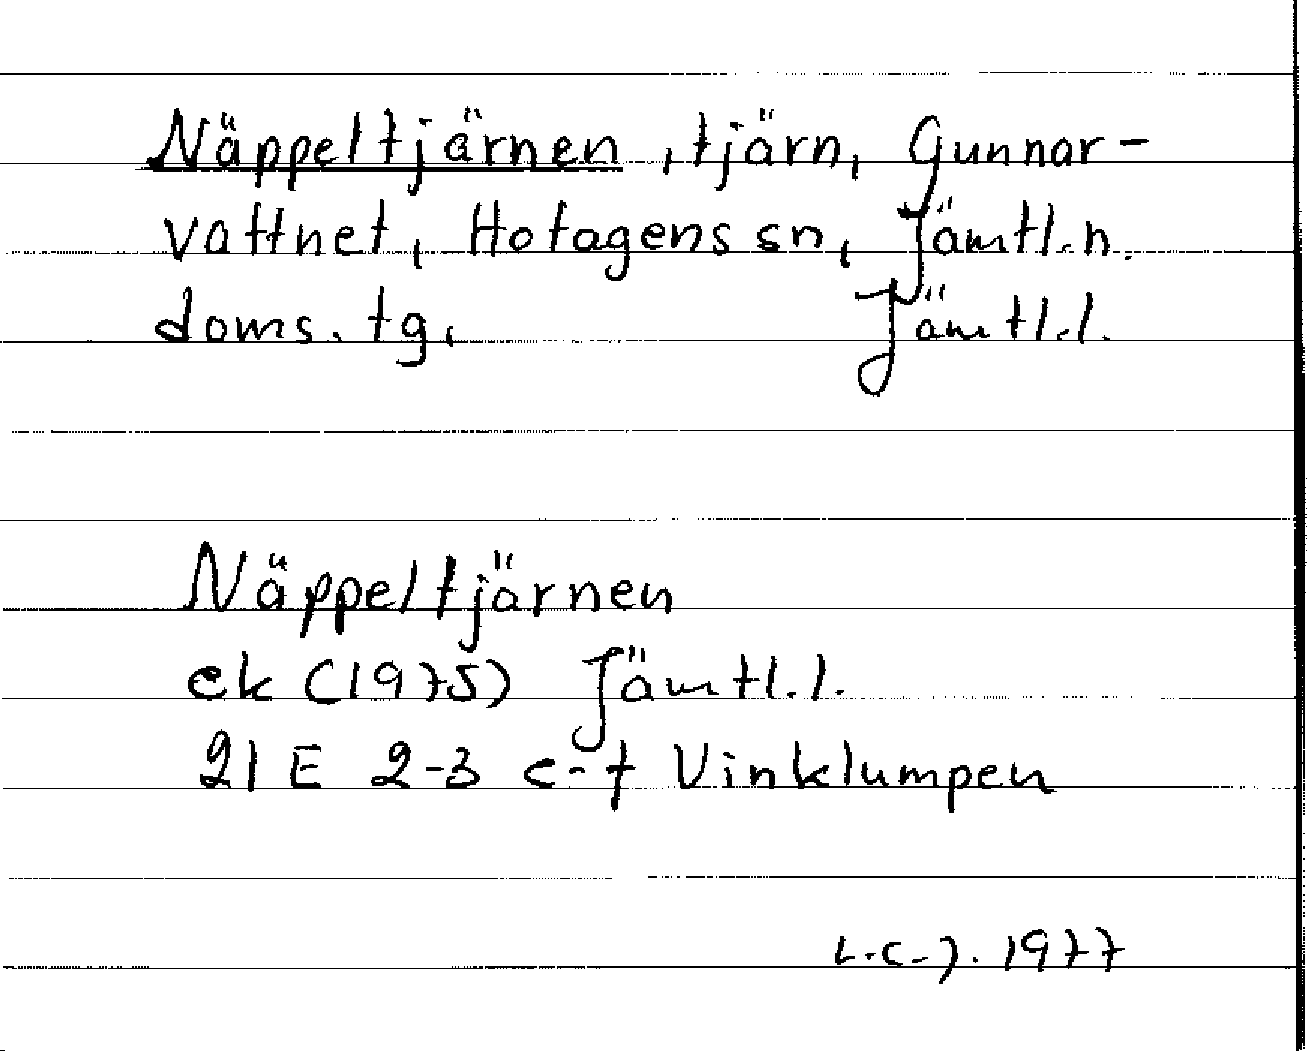 Näppeltjärnen, tjärn, Gunnar-
vattnet, Hotagens sn, Jämtl.n.
doms. tg, Jämtl.l.
Näppeltjärnen
ek (1975) Jämtl.l.
21 E 2-3 e-f Vinklumpen
L.C-J. 1977